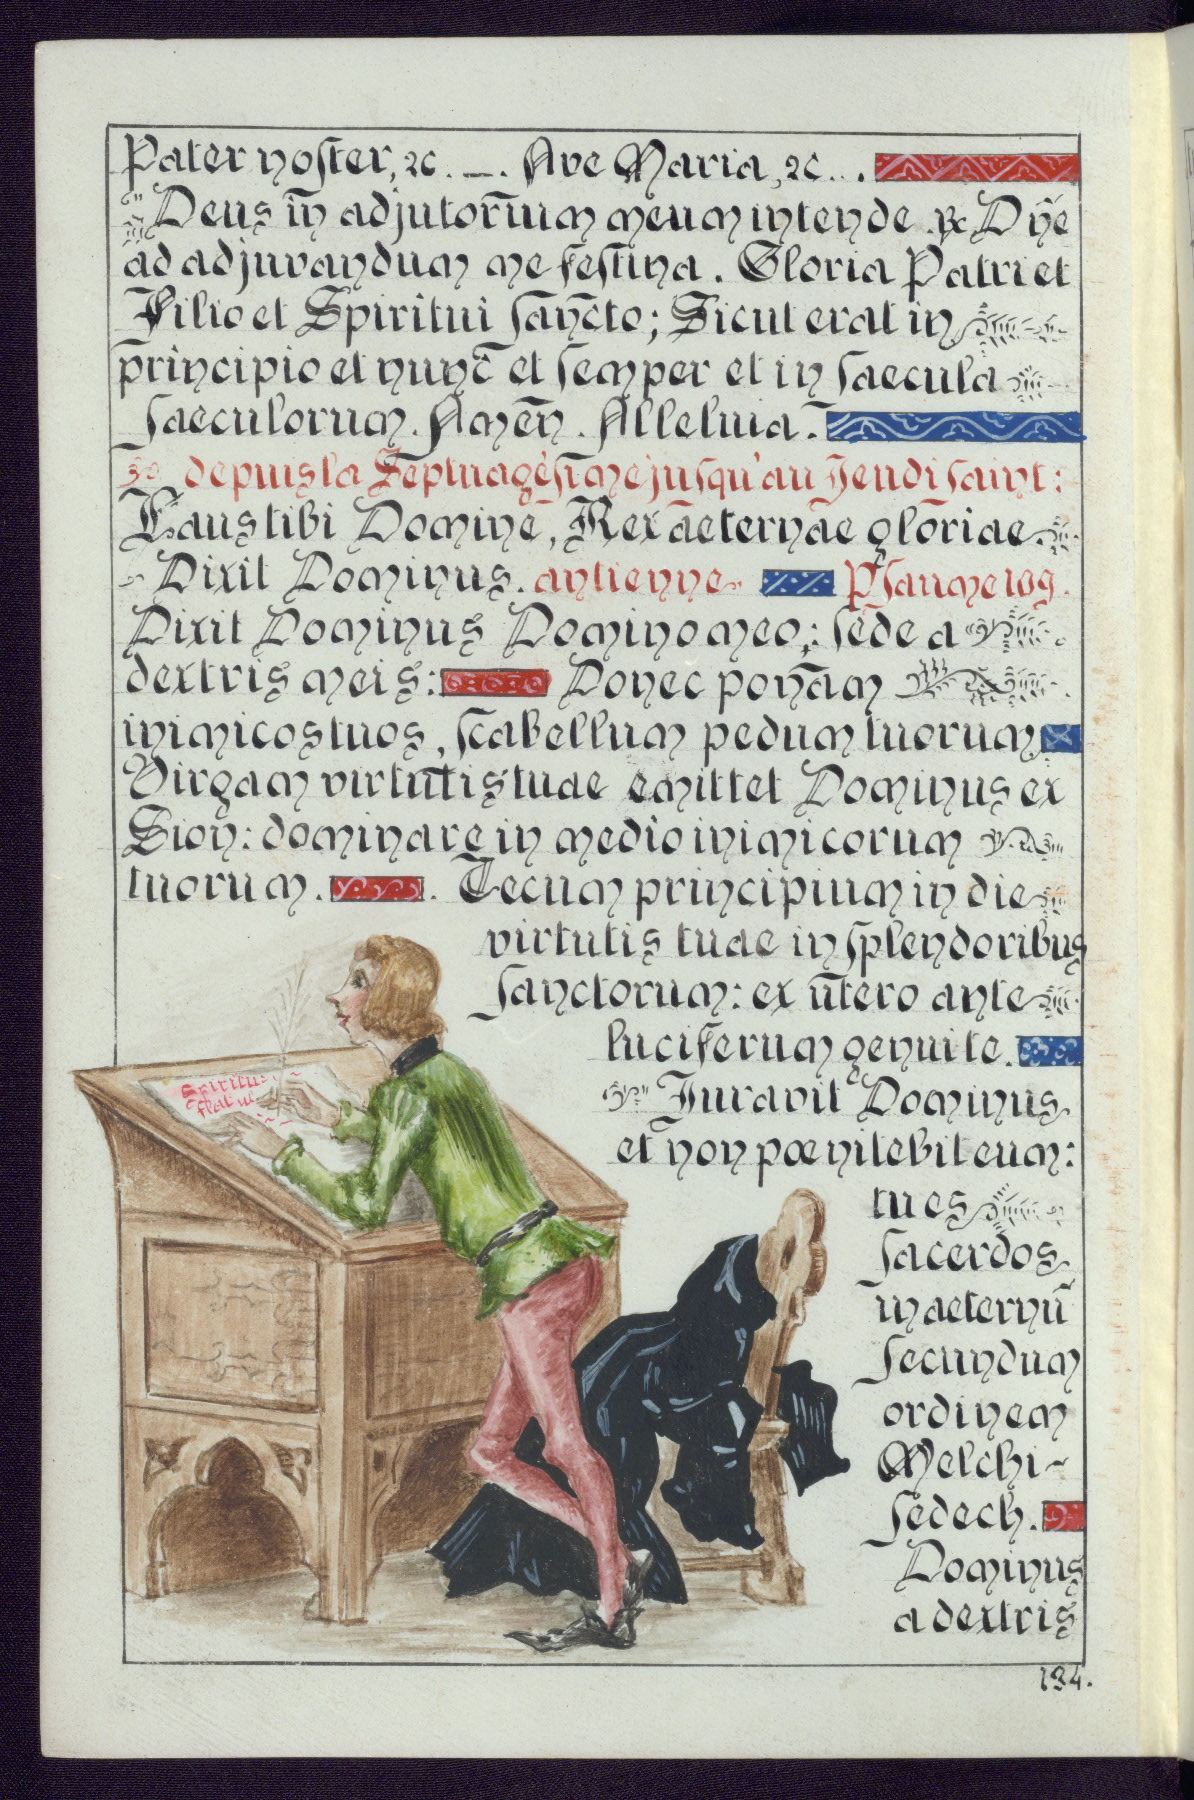 Pater noster, ꝛc. _. Ave Maria, ꝛc...
Deus in adjutorium meum intende. ℟ Dñe
ad adjuvandum me festina. Gloria Patri et
Filio et Spiritui Sancto; Sicut erat in
principio et nunc et semper et in saecula
saeculorum. Amen. Alleluia.
depuis la Septuagèsime jusqu'au Jeudi saint:
Laus tibi Domine, Rex aeternae gloriae.
Dixit Dominus. antienne Psaume 109.
Dixit Dominus Domino meo: sede a
dextris meis: Donec ponam
inimicos tuos, scabellum pedum tuorum
Virgam virtutis tuae emittet Dominus ex
Sion: dominare in medio inimicorum
tuorum. Tecum principium in die
virtutis tuae in splendoribus
sanctorum: ex utero ante
luciferum genui te.
Juravit Dominus
et non pœnitebit eum:
tu es
sacerdos
in aeternū
secundum
ordinem
Melchi-
sedech.
Dominus
a dextris
Spiritus
flat
134.